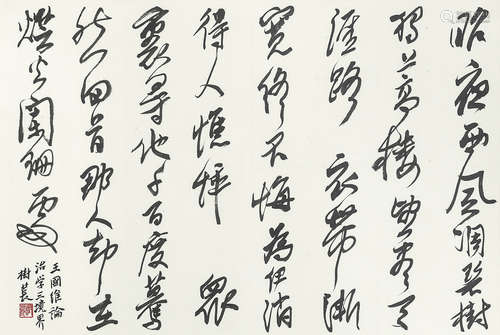 昨夜西風凋碧樹
獨上高樓望盡天
涯路 衣帶漸
寬終不悔為伊消
得人憔悴 眾
裏尋他千百度驀
然回首那人却在
燈火闌珊處
王國維論
治学三境界
樹